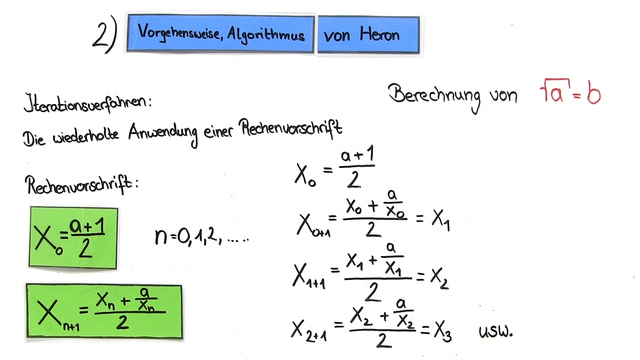 2) Vorgehensweise, Algorithmus von Heron
Iterationsverfahren:
Berechnung von √a = b
Die wiederholte Anwendung einer Rechenvorschrift
Rechenvorschrift:
X₀ = (a+1)/2
n=0,1,2,.....
Xₙ₊₁ = (Xₙ + a/Xₙ)/2
X₀ = (a+1)/2
X₀₊₁ = (X₀ + a/X₀)/2 = X₁
X₁₊₁ = (X₁ + a/X₁)/2 = X₂
X₂₊₁ = (X₂ + a/X₂)/2 = X₃ usw.